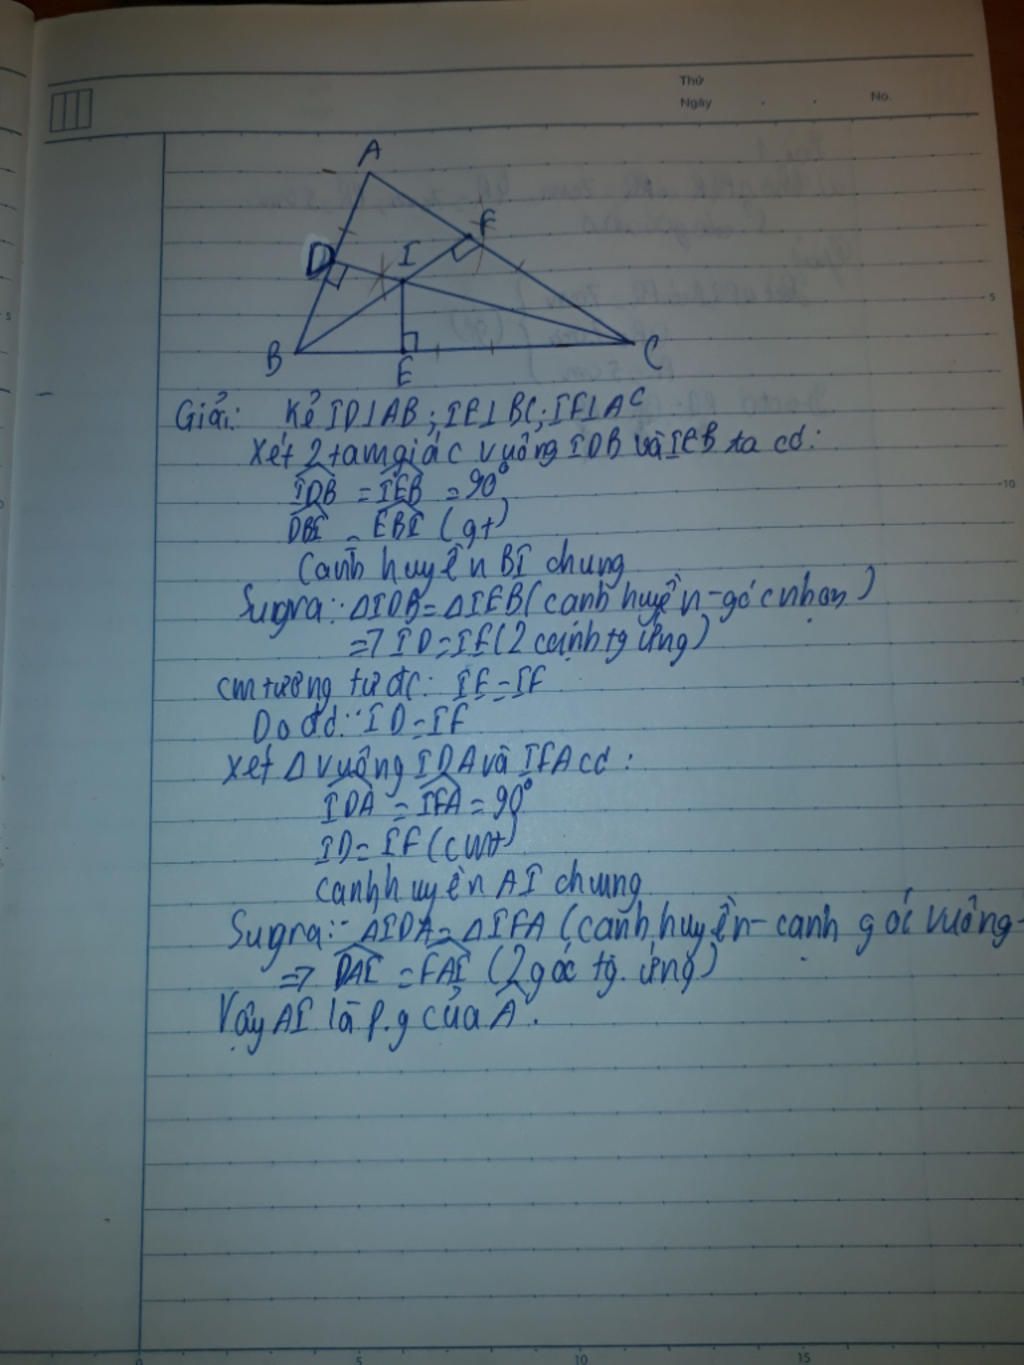 Thứ
Ngày . . No.
A
D I F
B E C
Giải: Kẻ ID⊥AB; IE⊥BC; IF⊥AC
Xét 2 tam giác vuông IDB và IEB ta có:
IDB = IEB = 90°
DBI = EBI (gt)
Cạnh huyền BI chung
Sugra: ΔIDB = ΔIEB (cạnh huyền - góc nhọn)
=> ID = IE (2 cạnh tg ứng)
cm tương tự đc: IE = IF
Do đó: ID = IF
Xét Δ vuông IDA và IFA có:
IDA = IFA = 90°
ID = IF (cmt)
cạnh huyền AI chung
Sugra: ΔIDA = ΔIFA (cạnh huyền - cạnh góc vuông
=> DAI = FAI (2 góc tg. ứng)
Vậy AI là p.g của A.
5
10
0 5 10 15